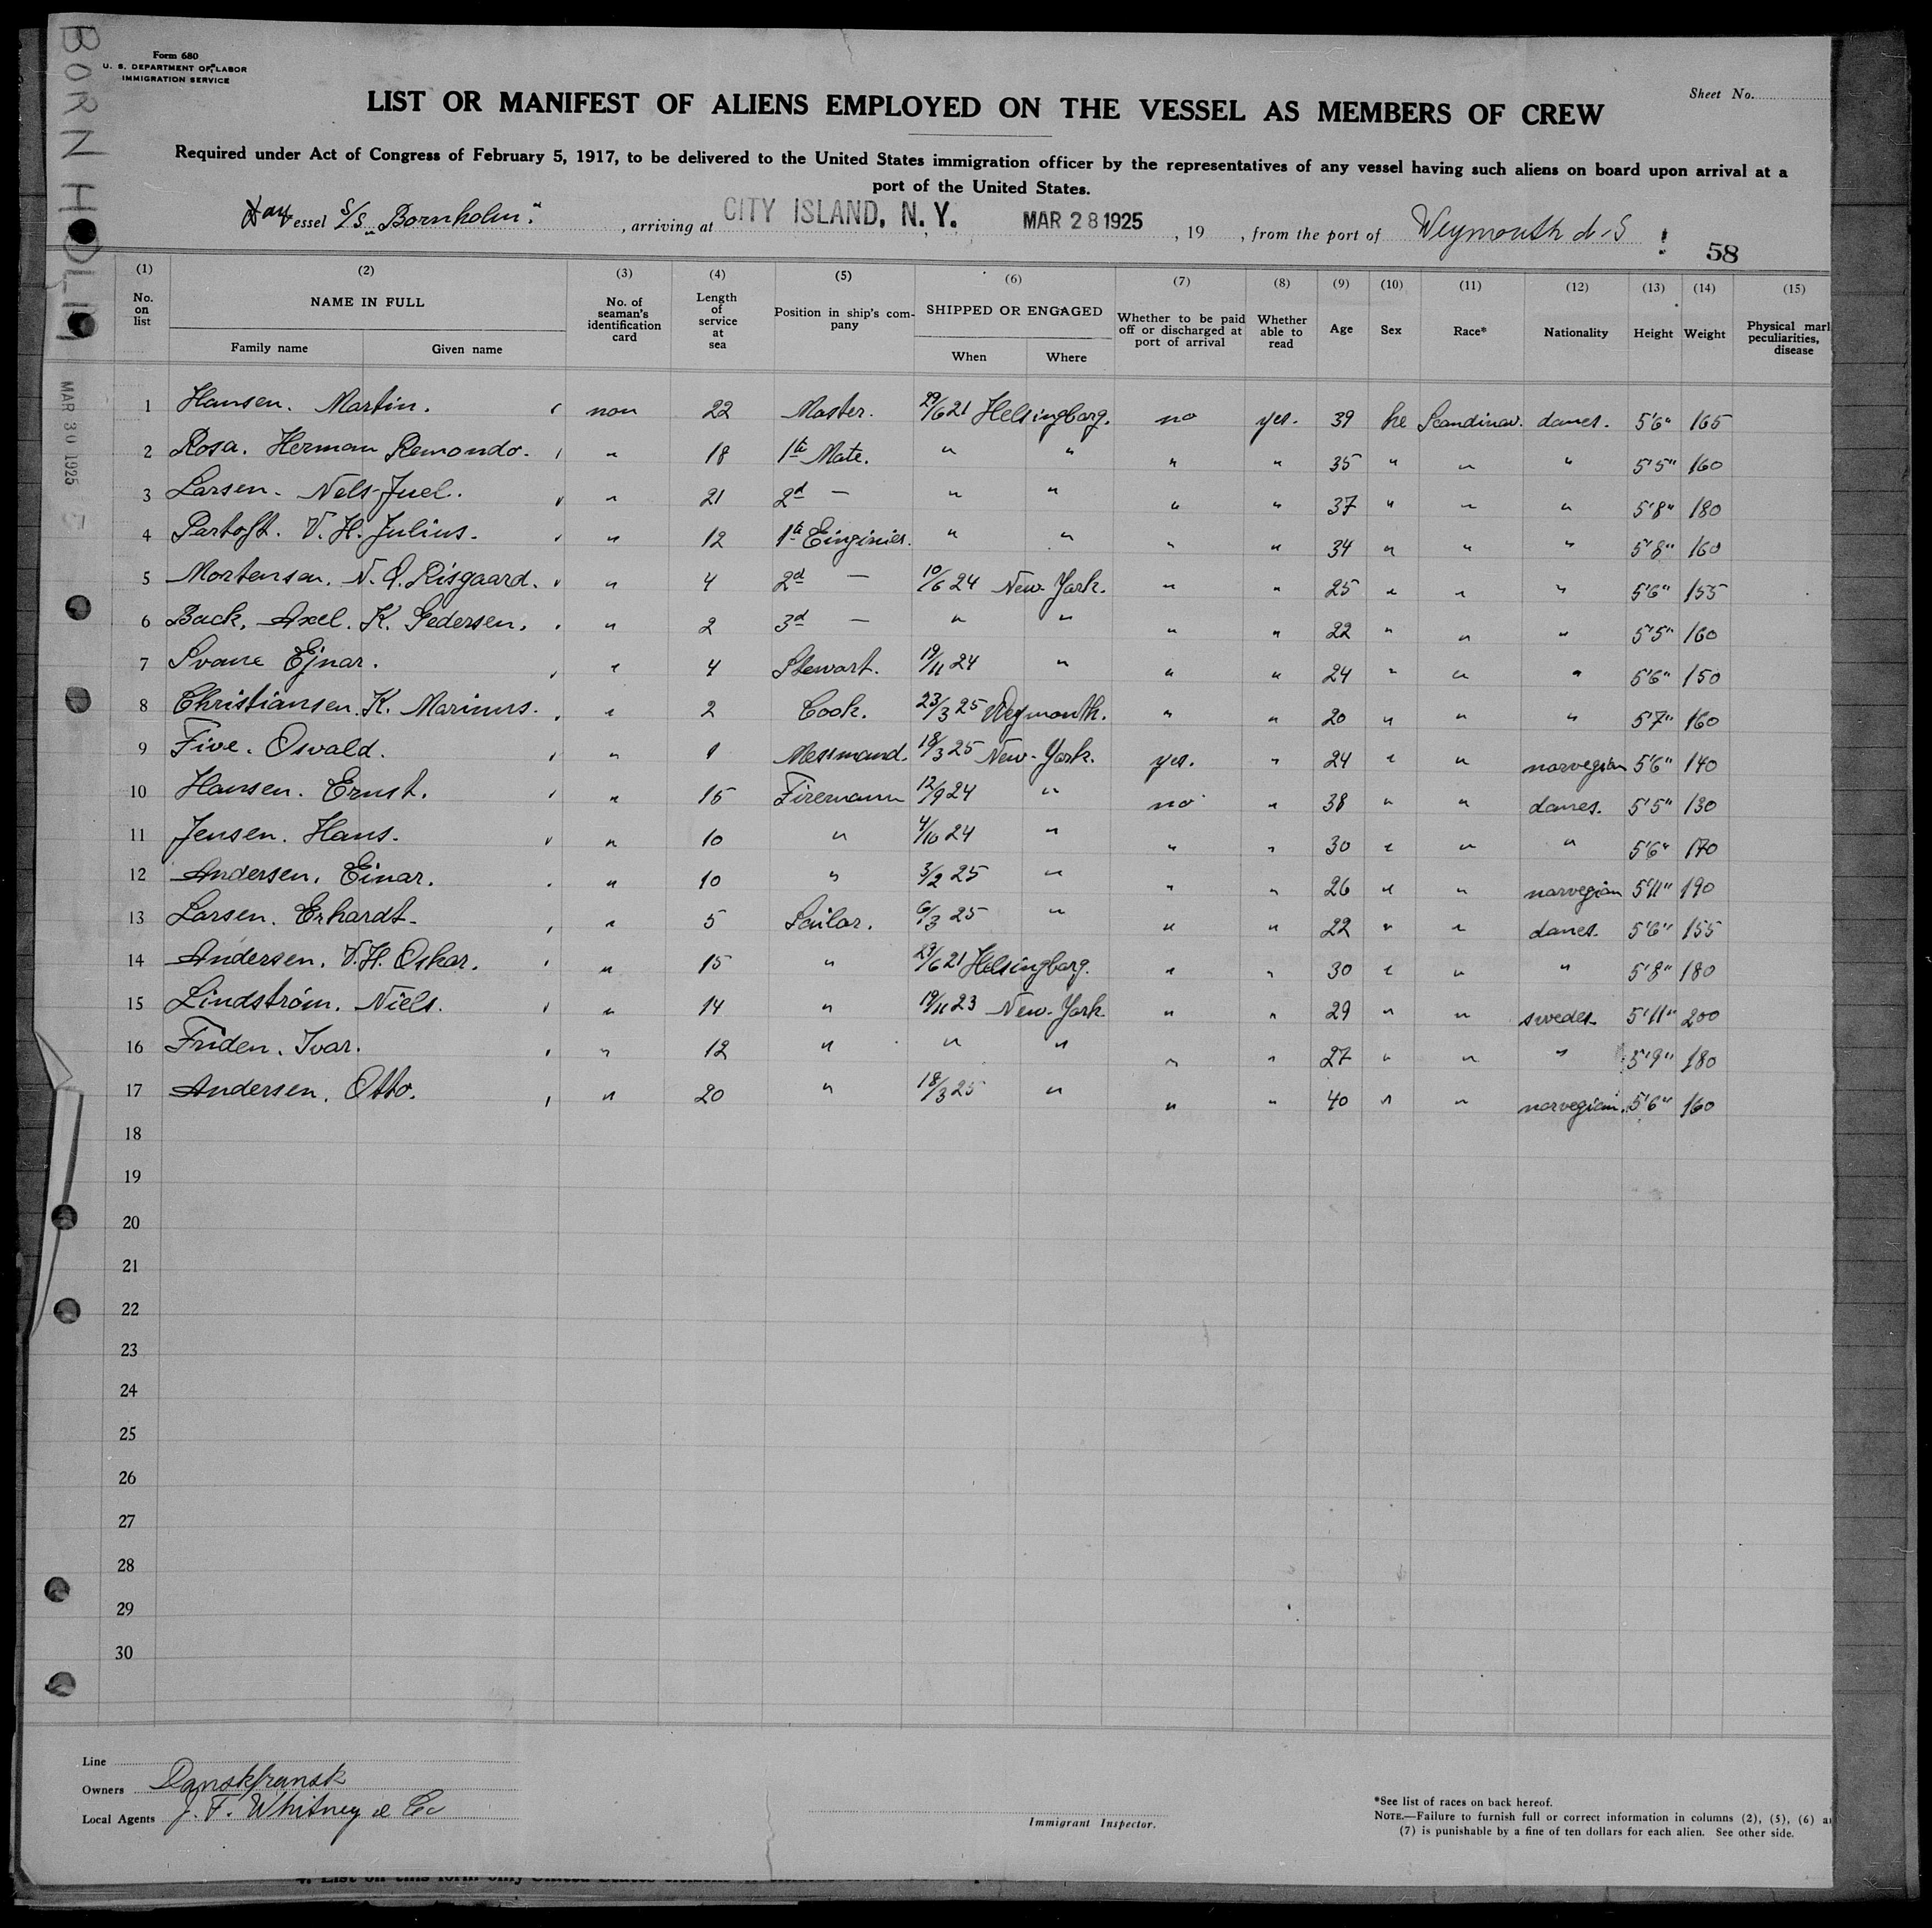 BORNHOLM
MAR 30 1925
Form 680
U. S. DEPARTMENT OF LABOR
IMMIGRATION SERVICE
Sheet No.
LIST OR MANIFEST OF ALIENS EMPLOYED ON THE VESSEL AS MEMBERS OF CREW
Required under Act of Congress of February 5, 1917, to be delivered to the United States immigration officer by the representatives of any vessel having such aliens on board upon arrival at a
port of the United States.
Vessel S/S „Bornholm“, arriving at CITY ISLAND, N. Y. MAR 28 1925, 19 , from the port of Weymouth
58
(1) (2) (3) (4) (5) (6) (7) (8) (9) (10) (11) (12) (13) (14) (15)
No. on list NAME IN FULL No. of seaman's identification card Length of service at sea Position in ship's company SHIPPED OR ENGAGED Whether to be paid off or discharged at port of arrival Whether able to read Age Sex Race* Nationality Height Weight Physical mar peculiarities, disease
Family name Given name When Where
1 Hansen. Martin. non 22 Master. 29/6 21 Helsingborg. no yes. 39 he Scandinav. danes. 5'6" 165
2 Rosa. Herman Remondo. " 18 1te Mate. " " " " 35 " " " 5'5" 160
3 Larsen. Nels-Juel. " 21 2d — " " " " 37 " " " 5'8" 180
4 Partoft. V. H. Julius. " 12 1te Enginier. " " " " 34 " " " 5'8" 160
5 Mortensen. N. O. Risgaard. " 4 2d — 10/6 24 New-York. " " 25 " " " 5'6" 155
6 Back. Axel. K. Pedersen. " 2 3d — " " " " 22 " " " 5'5" 160
7 Svane Ejnar. " 4 Stewart. 19/11 24 " " " 24 " " " 5'6" 150
8 Christiansen. K. Marinus. " 2 Cook. 23/3 25 Weymouth. " " 20 " " " 5'7" 160
9 Five. Osvald. " 1 Messmand. 18/3 25 New-York. yes. " 24 " " norvegian 5'6" 140
10 Hansen. Ernst. " 15 Firemann 12/9 24 " no " 38 " " danes. 5'5" 130
11 Jensen. Hans. " 10 " 4/10 24 " " " 30 " " " 5'6" 170
12 Andersen. Einar. " 10 " 3/2 25 " " " 26 " " norvegian 5'11" 190
13 Larsen. Erhardt. " 5 Sailor. 6/3 25 " " " 22 " " danes. 5'6" 155
14 Andersen. V. H. Oskar. " 15 " 29/6 21 Helsingborg. " " 30 " " " 5'8" 180
15 Lindström. Niels. " 14 " 19/11 23 New-York. " " 29 " " swedes. 5'11" 200
16 Friden. Ivar. " 12 " " " " " 27 " " " 5'9" 180
17 Andersen. Otto. " 20 " 18/3 25 " " " 40 " " norvegian. 5'6" 160
18
19
20
21
22
23
24
25
26
27
28
29
30
Line
Owners Danskfransk
Local Agents J. F. Whitney & Co
Immigrant Inspector.
*See list of races on back hereof.
NOTE.—Failure to furnish full or correct information in columns (2), (5), (6) a
(7) is punishable by a fine of ten dollars for each alien. See other side.